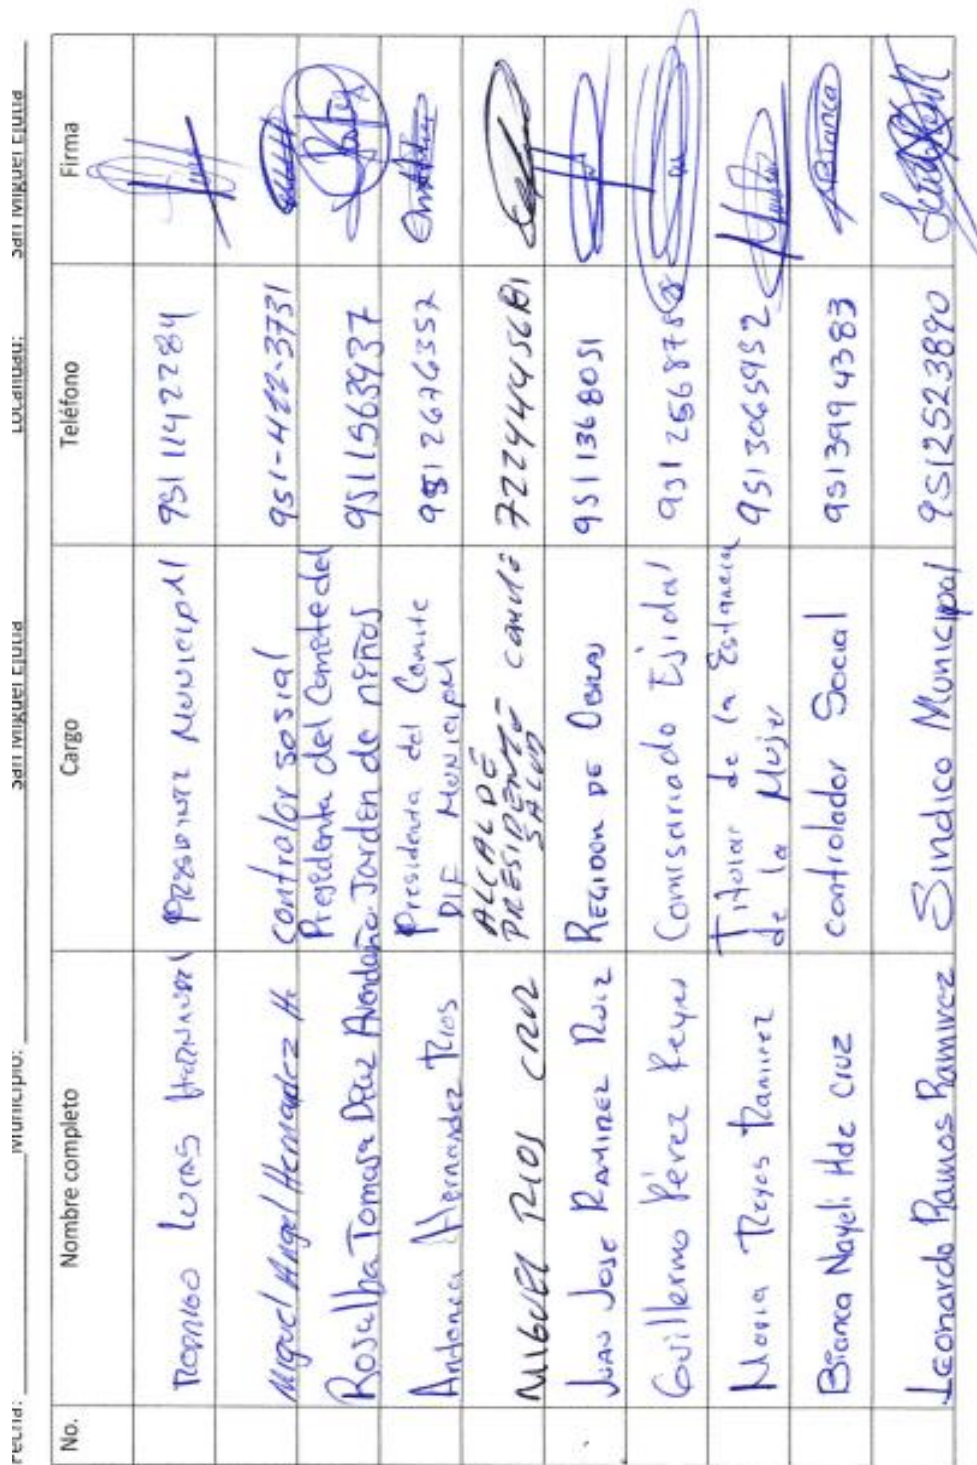 Fecha: Municipio: San Miguel Ejutla Localidad: San Miguel Ejutla
No. Nombre completo Cargo Teléfono Firma
Rodrigo Lucas Hernandez Presidente Municipal 951 1142284
Miguel Angel Hernandez He Contralor sosial 951-412-3731
Rosalba Tomasa Díaz Avendaño Presidenta del Comite del
Jarden de niños 9511563937
Antonia Hernandez Rios Presidenta del Comite
DIF Municipal 951 2676357
MIGUEL RIOS CRUZ ALCALDE
PRESIDENTE COMITÉ
SALUD
JUAN JOSE RAMIREZ RUIZ REGIDOR DE OBRAS 951 1368051
Guillermo Pérez Reyes Comisariado Ejidal 951 256878
Maria Reyes Ramirez Titular de la Estancia
de la Mujer 951 3065952
Bianca Nayeli Hdz Cruz controlador Social 9513994383 Bianca
Leonardo Ramos Ramirez Sindico Municipal 9512523890